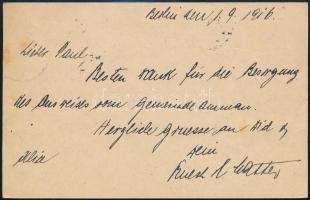 Berlin den 1.9.1916.
Lieber Paul,
Besten Dank für die Besorgung
des Ausweises vom Gemeindeamman.
Herzliche Gruesse an Dich &
alia
Dein